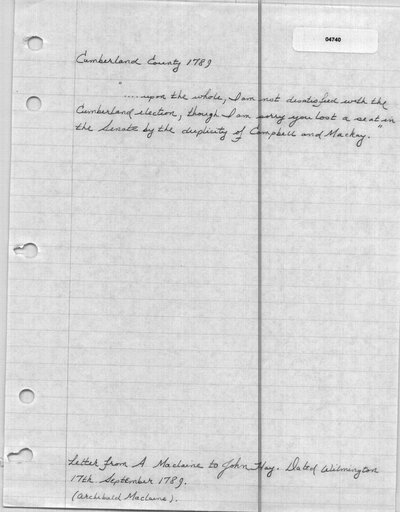 04740
Cumberland County 1789
"....upon the whole, I am not dissatisfied with the
Cumberland election, though I am sorry you lost a seat in
the Senate by the duplicity of Campbell and Mackay."
Letter from A Maclaine to John Hay. Dated Wilmington
17th September 1789.
(Archibald Maclaine).